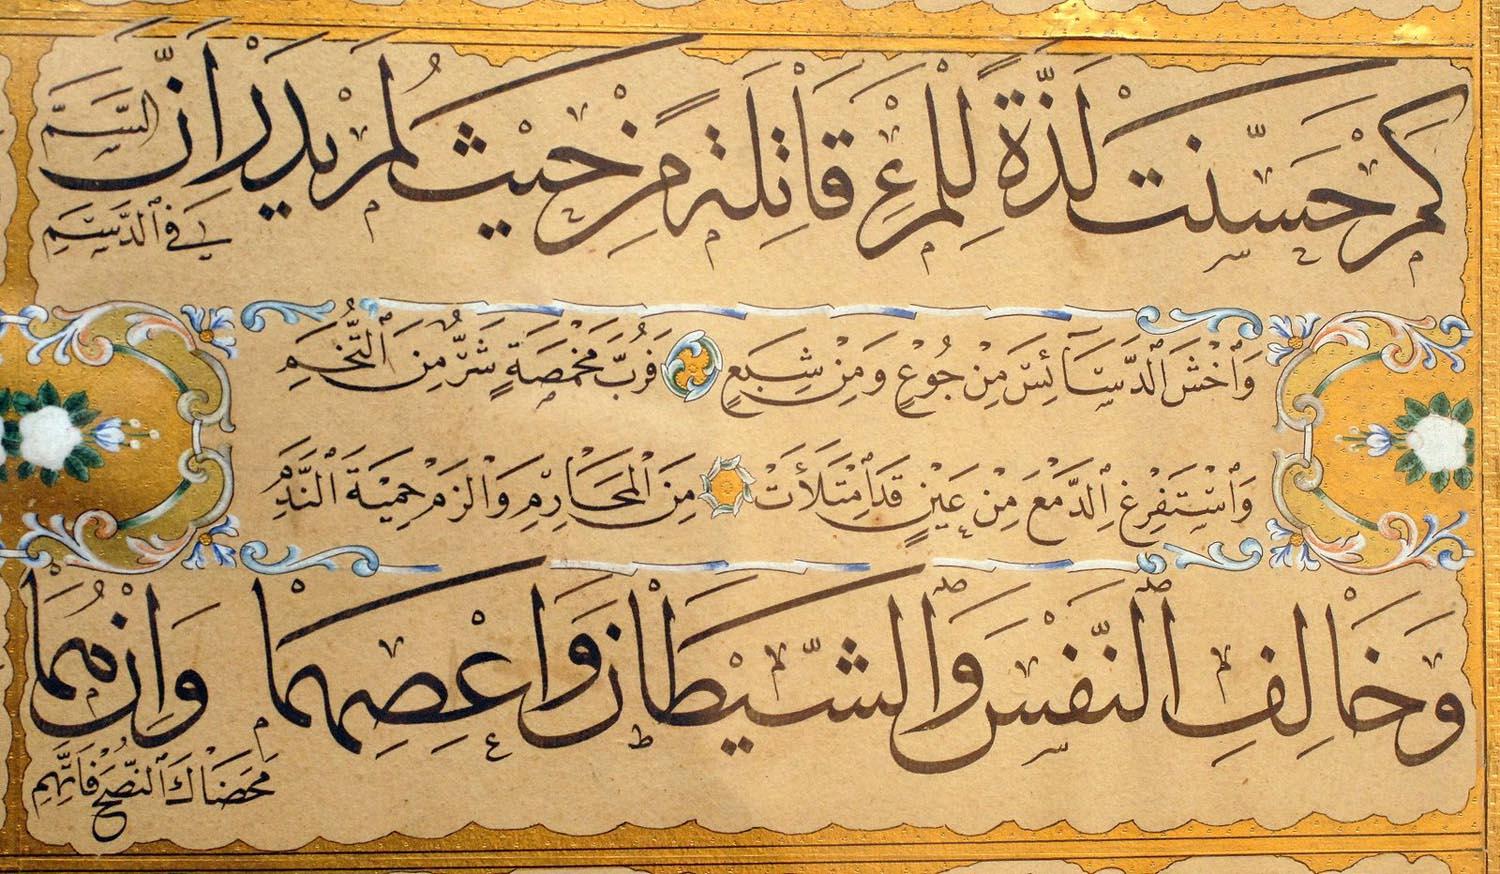 كَمْ حَسَّنَتْ لَذَّةً لِلْمَرْءِ قَاتِلَةً مِنْ حَيْثُ لَمْ يَدْرِ اَنَّ السَّمَّ
فِي الدَّسَمِ
وَاخْشَ الدَّسَآئِسَ مِنْ جُوعٍ وَمِنْ شِبَعٍ فَرُبَّ مَخْمَصَةٍ شَرٌّ مِنَ التُّخَمِ
وَاسْتَفْرِغِ الدَّمْعَ مِنْ عَيْنٍ قَدِ امْتَلَأَتْ مِنَ الْمَحَارِمِ وَالْزَمْ حِمْيَةَ النَّدَمِ
وَخَالِفِ النَّفْسَ وَالشَّيْطَانَ وَاعْصِهِمَا وَاِنْ هُمَا
مَحَضَاكَ النُّصْحَ فَاتَّهِمِ